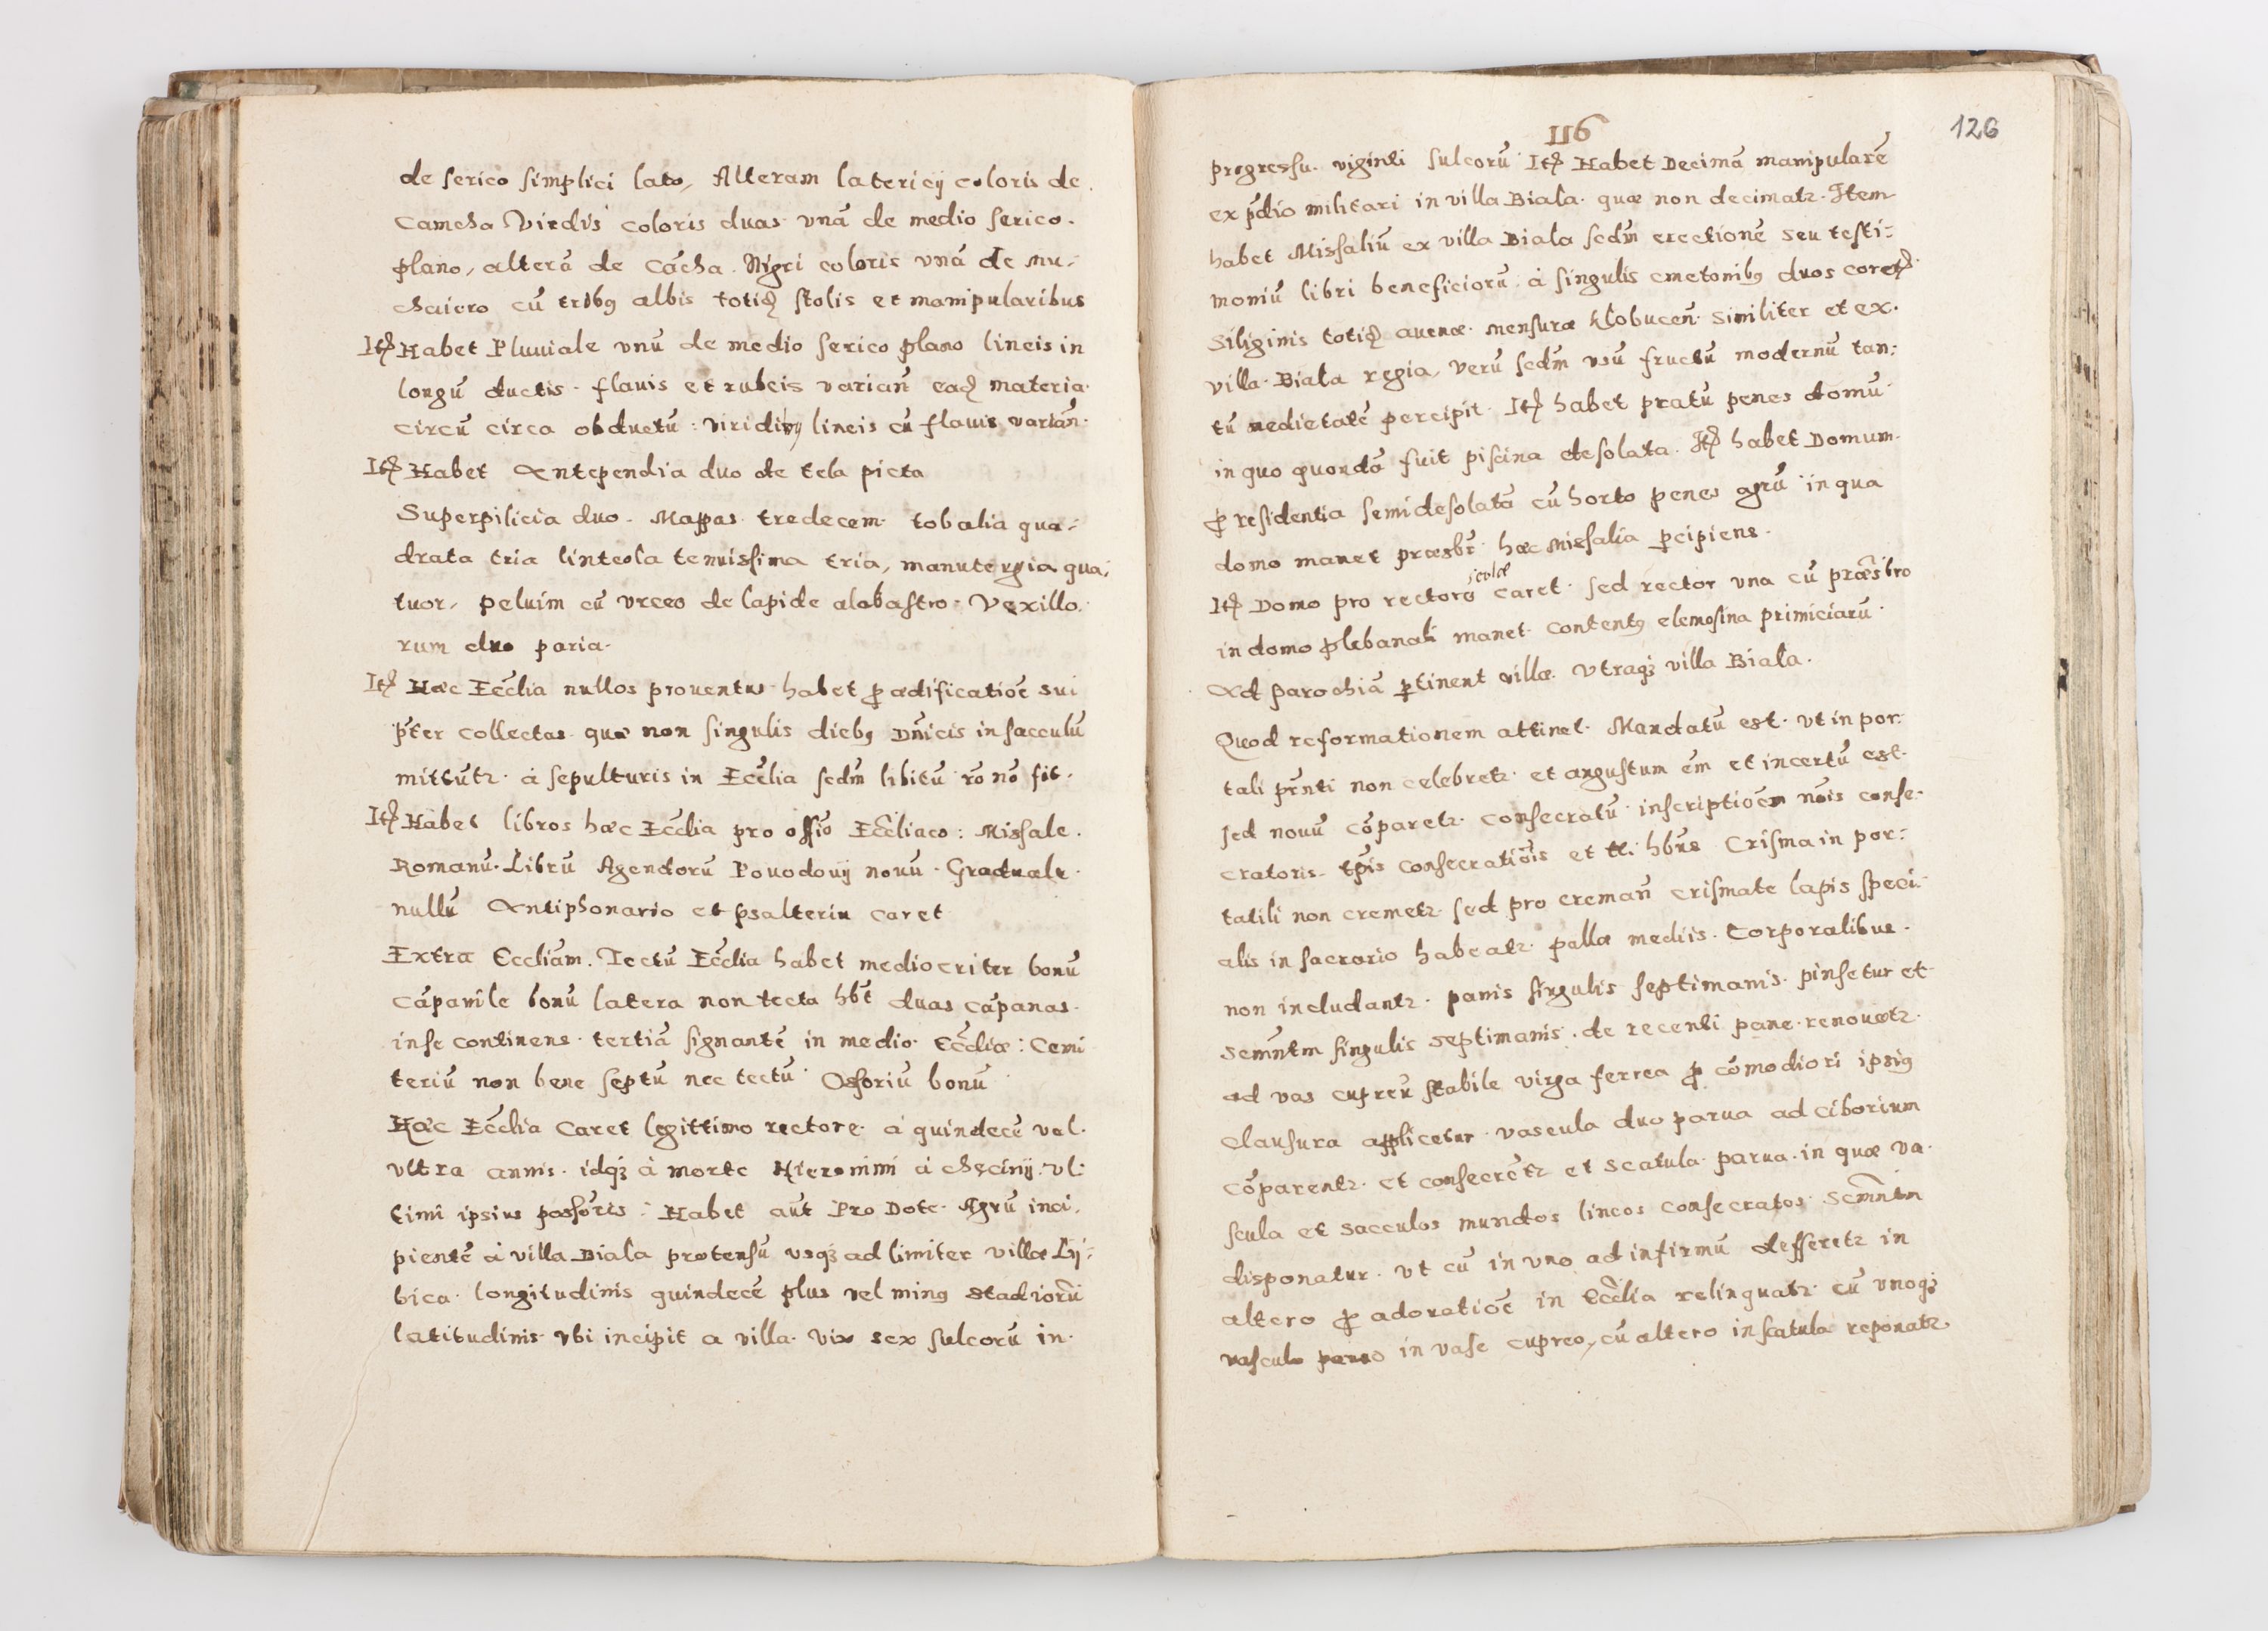 de serico simplici lato, Alteram latericij coloris de
camcha Virdis coloris duas vnā de medio serico.
plano, alterā de cācha. Nigri coloris vnā de mu-
chaiero cū tribꝫ albis totiḍ stolis et manipularibus
Itꝫ Habet Pluuiale vnū de medio serico plano lineis in
longū ductis. flauis et rubeis varian̄ eaḍ materia.
circū circa obductū: viridibꝫ lineis cū flauis varian̄.
Itꝫ Habet Antependia duo de tela picta
Superpilicia duo. Mappas tredecem tobalia qua-
drata tria linteola tenuissima tria, manutergia qua-
tuor, peluim cū vrceo de lapide alabastro. Vexillo.
rum duo paria.
Itꝫ Haec Ecc̄lia nullos prouentus habet ꝓ aedificatiōe sui
p̄ter collectas quae non singulis diebꝫ Dn̄icis in sacculū
mittūtr. à sepulturis in Ecc̄lia secd̄m libitū rō nō fit.
Itꝫ Habet libros haec Ecc̄lia pro offīo Ecc̄liaco: Missale.
Romanū. Librū Agendorū Pouodouij nouū. Graduale.
nullū Antiphonario et psalteriu caret
Extra Eccliam. Tectū Ecc̄lia habet mediocriter bonū
cāpanile bonū latera non tecta hb̄t duas cāpanas.
in se continens. tertiā signantē in medio Ecc̄liae: Cemi
teriū non bene septū nec tectū Ossoriū bonū
Haec Ecc̄lia Caret legittimo rectore. à quindecē vel.
vltra annis. idqꝫ à morte Hieronimi à chęcinij. vl:
timi ipsius possōris: Habet aūt Pro Dote. Agrū inci.
pientē à villa Biala protensū vsqꝫ ad limiter villae Lij-
bica. longitudinis quindecē plus vel minꝫ stadiorū
latitudinis vbi incipit a villa. vix sex sulcorū in.
116
126
progressu. viginti sulcorū Itꝫ Habet Decimā manipularē
ex p̄dio militari in villa Biala. quae non decimatr. Item
habet Missaliū ex villa Biala secd̄m erectionē seu testi-
moniū libri beneficiorū à singulis cmetonibꝫ duos coretꝫ.
Siliginis totiḍ auenae. mensurae Klobucen̄. similiter et ex.
villa Biala regia, verū secd̄m vsū fructū modernū tan-
tū medietatē percipit. Itꝫ habet pratū penes domū
in quo quondā fuit piscina desolata. Itꝫ habet Domum.
ꝓ residentia semidesolatā cū horto penes agrū in qua
domo manet praesbr̄. haec Missalia ꝑcipiens.
scolae
Itꝫ Domo pro rectore caret. sed rector vna cū praēsbro
in domo plebanali manet. contentꝫ elemosina primiciarū.
Ad parochiā ꝑtinent villae. vtraqꝫ villa Biala.
Quod reformationem attinet. Mandatū est. vt in por-
tali pr̄nti non celebretr. et angustum ēm et incertū est.
sed nouū cōparetr. consecratū. inscriptiōem nōis conse-
cratoris. tp̄is consecratiōis et tt. hb̄ns Crisma in por-
tatili non cremetr. sed pro creman̄ crismate lapis speci-
alis in sacrario habeatr. pallae mediis. Corporalibus.
non includantr. panis singulis septimanis. pinsetur et
Semn̄tm singulis septimanis. de recenti pane. renouetr.
ad vas cupreū stabile virga ferrea ꝓ cōmodiori ipsiꝫ
clausura applicetur. vascula duo parua ad ciborium
cōparentr. et consecrētr et scatula parua. in quae va-
scula et sacculos mundos lineos consecratos Semn̄tm
disponatur. vt cū in vno ad infirmū defferetr in
altero ꝓ adoratiōe in Ecc̄lia relinquatr. cū vnoqꝫ
vasculo paruo in vase cupreo, cū altero in scatula reponatr.